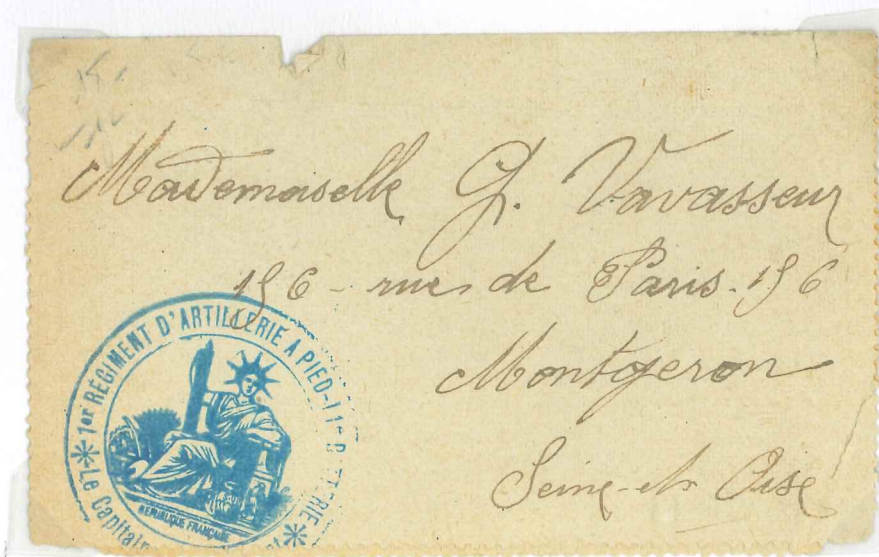 Mademoiselle G. Vavasseur
156 - rue de Paris - 156
Montgeron
Seine-et-Oise
1er RÉGIMENT D'ARTILLERIE A PIED
RÉPUBLIQUE FRANÇAISE
Le Capitaine